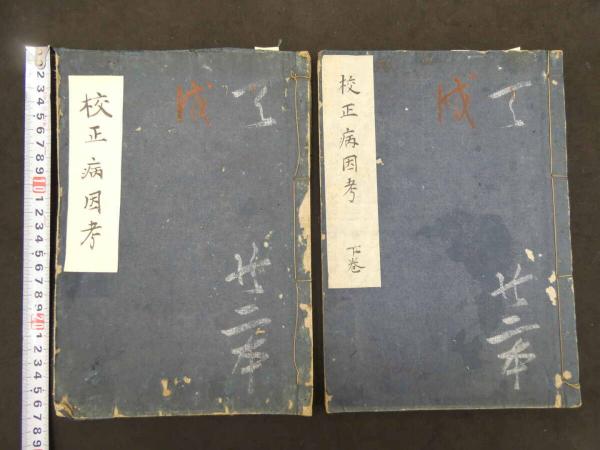 校正病因考
戌
廿二本
校正病因考
下巻
戌
廿二本
1 2 3 4 5 6 7 8 9 10 1 2 3 4 5 6 7 8 9 20 1 2 3 4 5 6 7 8 9